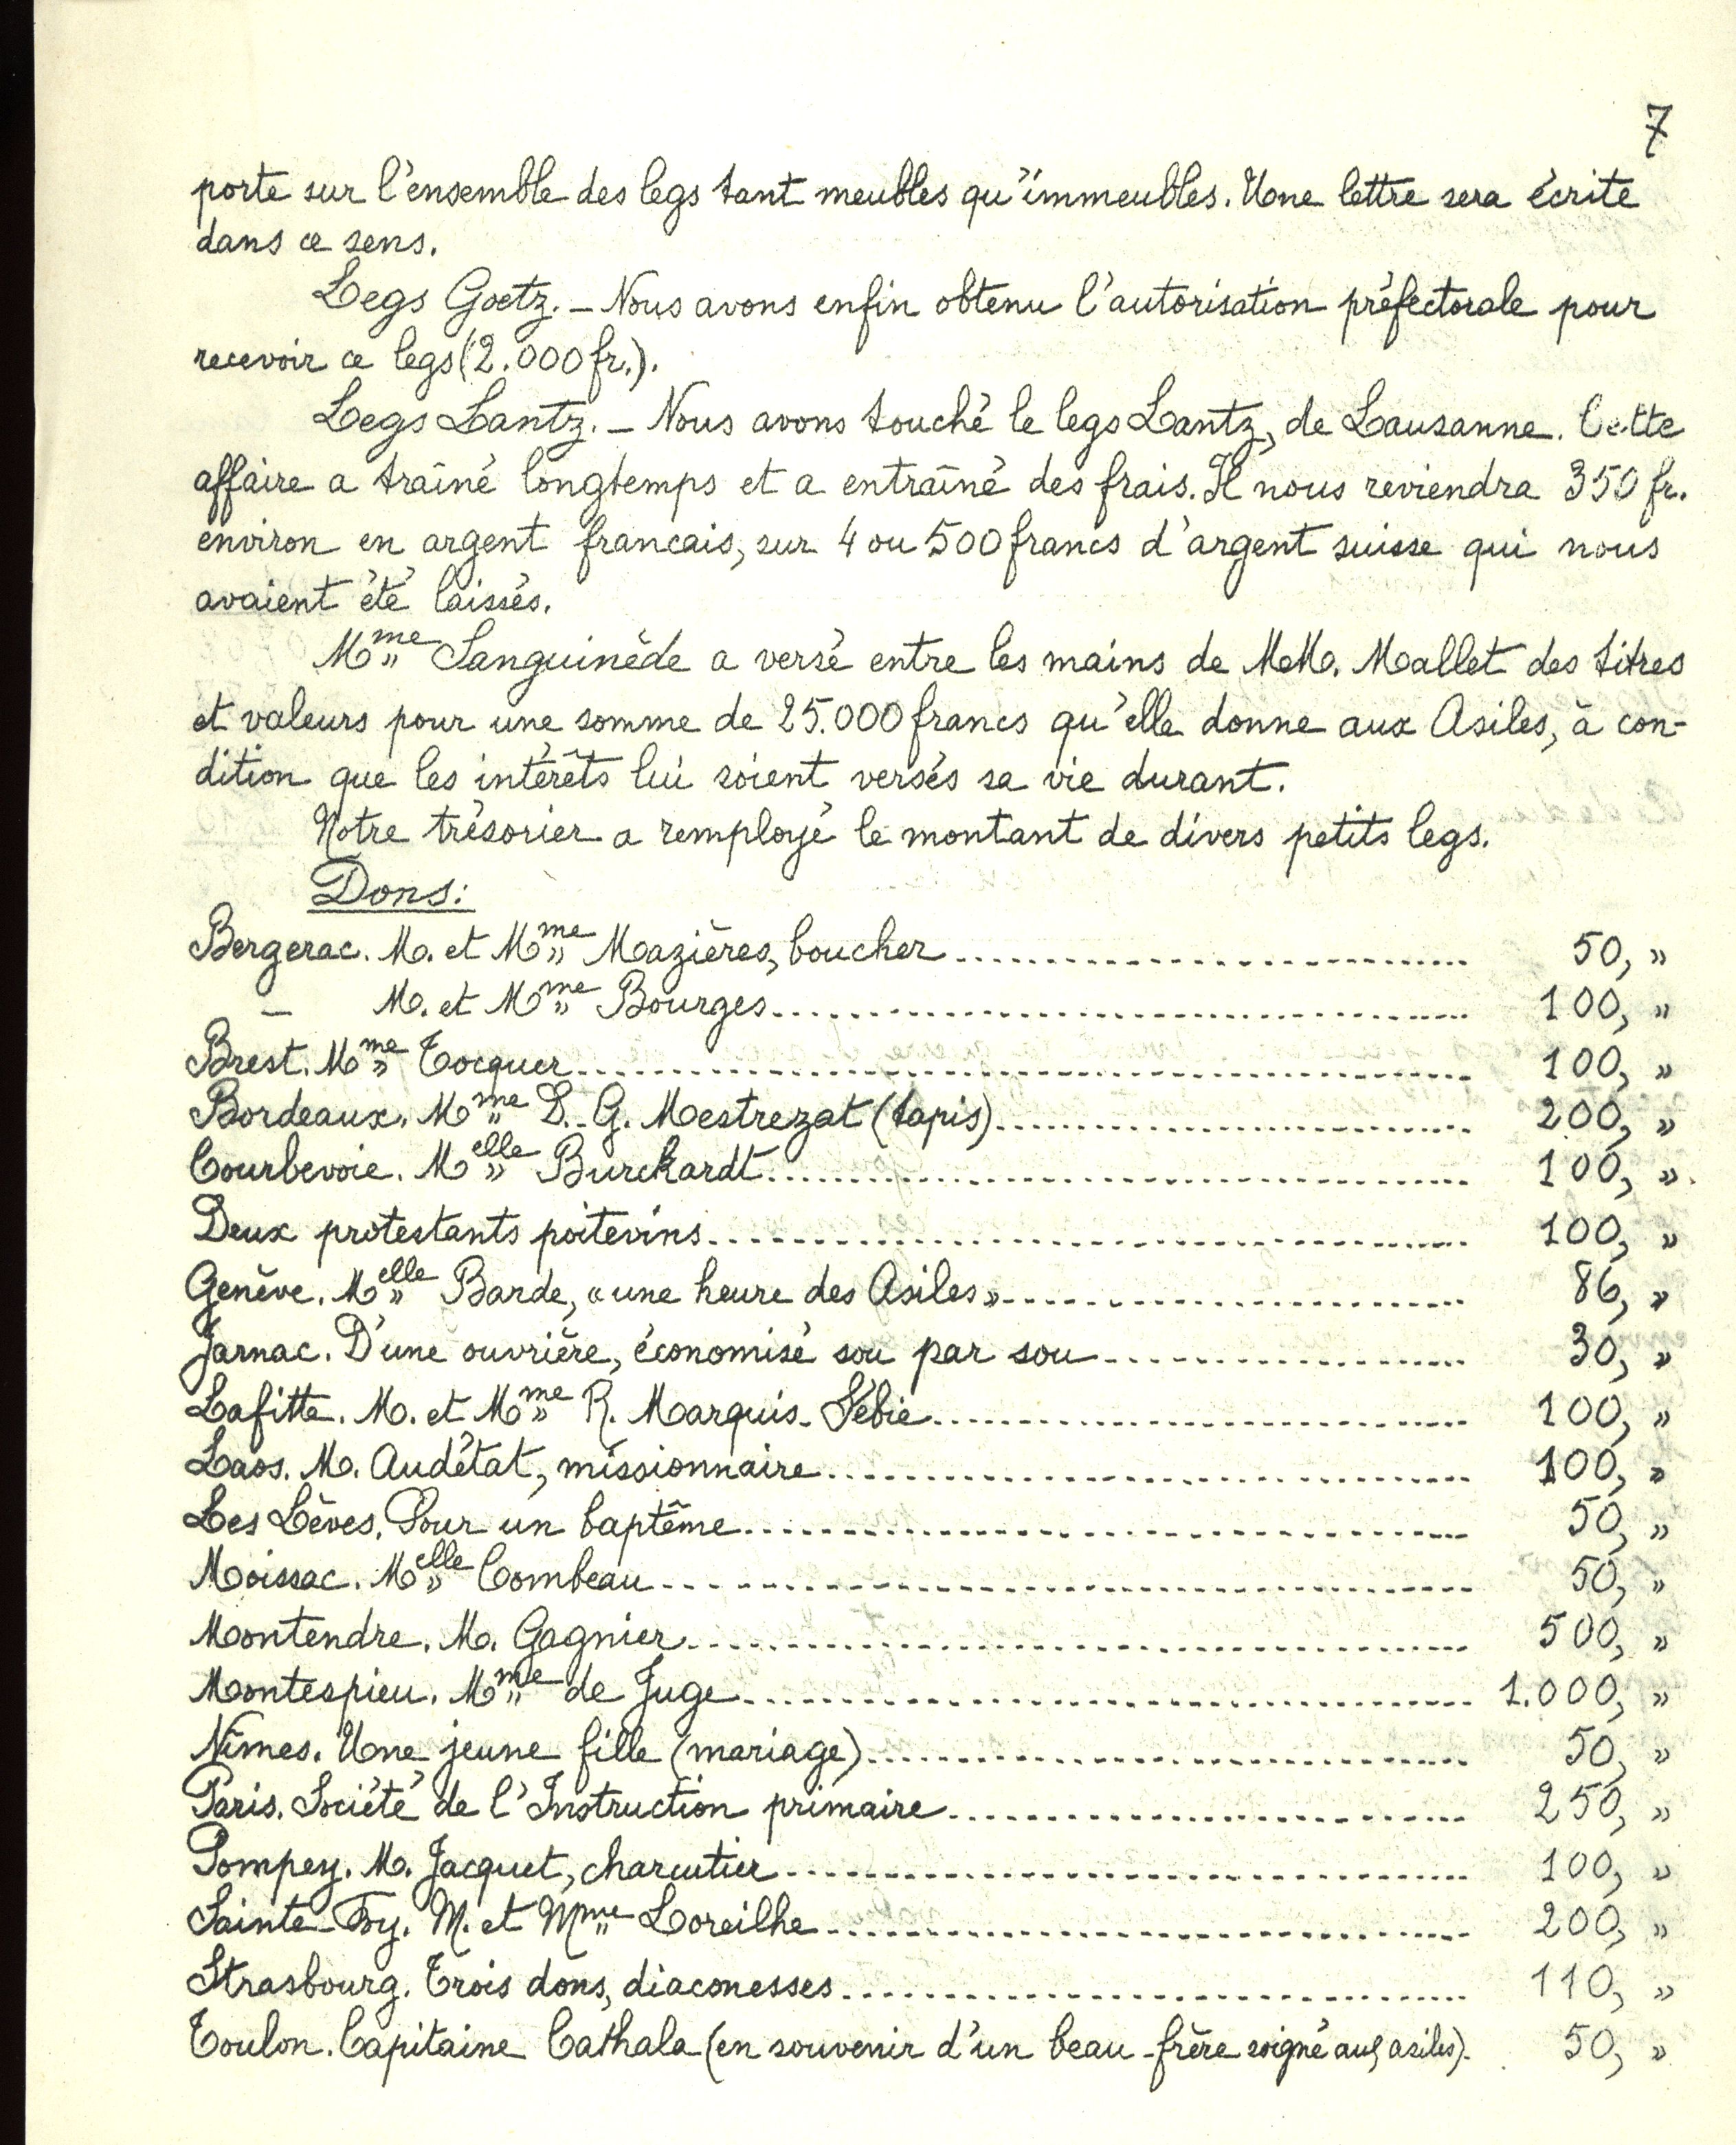 7
porte sur l'ensemble des legs tant meubles qu'immeubles. Une lettre sera écrite
dans ce sens.
Legs Goetz. - Nous avons enfin obtenu l'autorisation préfectorale pour
recevoir ce legs (2.000 fr.).
Legs Lantz. - Nous avons touché le legs Lantz, de Lausanne. Cette
affaire a traîné longtemps et a entraîné des frais. Il nous reviendra 350 fr.
environ en argent francais, sur 4 ou 500 francs d'argent suisse qui nous
avaient été laissés.
Mme Sanguinède a versé entre les mains de MM. Mallet des titres
et valeurs pour une somme de 25.000 francs qu'elle donne aux Asiles, à con-
dition que les intérêts lui soient versés sa vie durant.
Notre trésorier a remployé le montant de divers petits legs.
Dons:
Bergerac. M. et Mme Mazières, boucher 50, »
- M. et Mme Bourges 100, »
Brest. Mme Tocquer 100, »
Bordeaux. Mme D. G. Mestrezat (tapis) 200, »
Courbevoie. Melle Burckardt 100, »
Deux protestants poitevins 100, »
Genève. Melle Barde, « une heure des Asiles » 86, »
Jarnac. D'une ouvrière, économisé sou par sou 30, »
Lafitte. M. et Mme R. Marquis-Sébie 100, »
Laos. M. Audétat, missionnaire 100, »
Les Lèves. Pour un baptême 50, »
Moissac. Melle Combeau 50, »
Montendre. M. Gagnier 500, »
Montespieu. Mme de Juge 1.000, »
Nîmes. Une jeune fille (mariage) 50, »
Paris. Société de l'Instruction primaire 250, »
Pompey. M. Jacquet, charcutier 100, »
Sainte-Foy. M. et Mme Loreilhe 200, »
Strasbourg. Trois dons, diaconesses 110, »
Toulon. Capitaine Cathala (en souvenir d'un beau-frère soigné aux asiles). 50, »